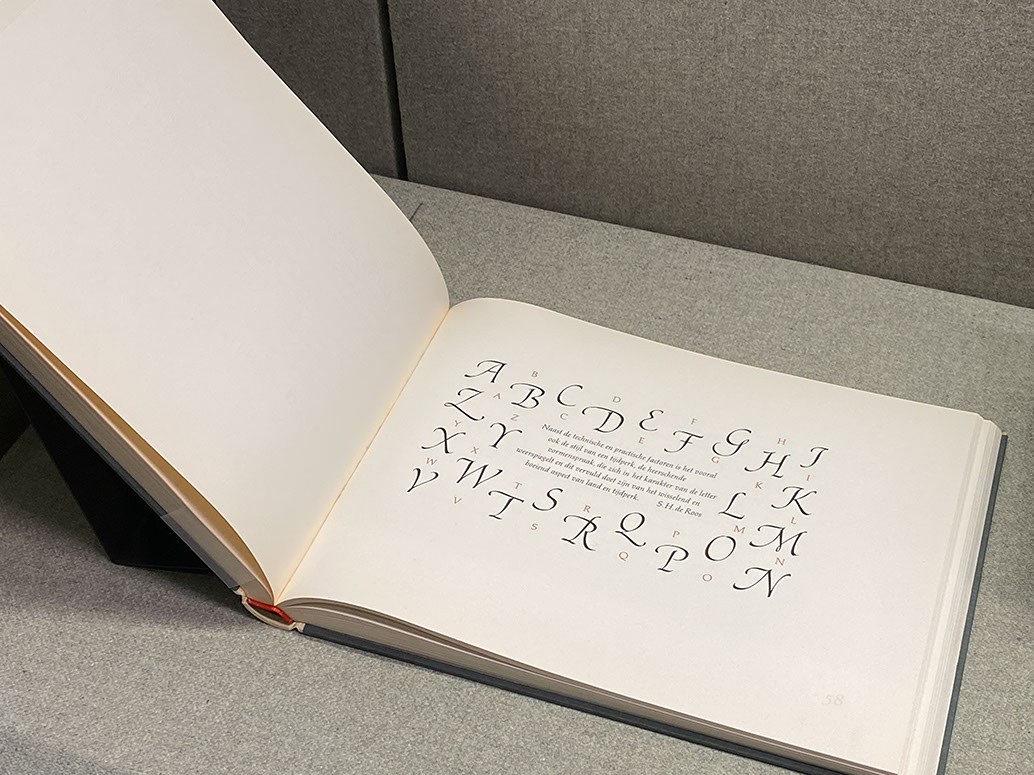 B D F H
A B C D E F G H I
A C E G I
Z Z
Y Y K K
X X L L
Naast de technische en practische factoren is het vooral
ook de stijl van een tijdperk, de heerschende
vormenspraak, die zich in het karakter van de letter
weerspiegelt en dit vervuld doet zijn van het wisselend en
boeiend aspect van land en tijdperk.
S.H. de Roos
W W M M
T R P N
V T S R Q P O N
V S Q O
58